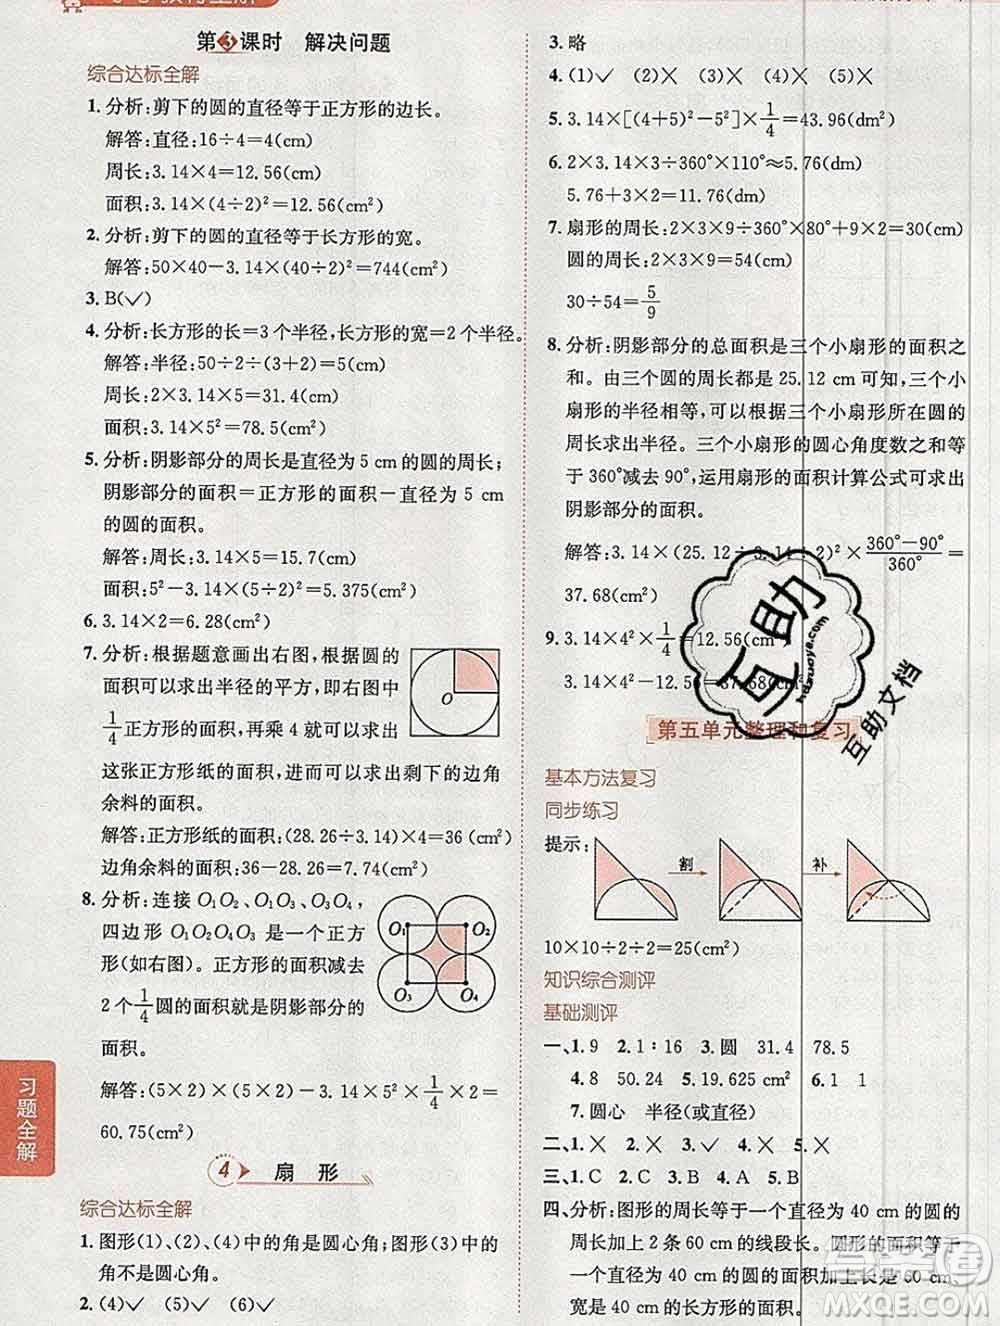 第3课时 解决问题
综合达标全解
1. 分析:剪下的圆的直径等于正方形的边长。
解答:直径:16÷4=4(cm)
周长:3.14×4=12.56(cm)
面积:3.14×(4÷2)²=12.56(cm²)
2. 分析:剪下的圆的直径等于长方形的宽。
解答:50×40-3.14×(40÷2)²=744(cm²)
3. B(✓)
4. 分析:长方形的长=3个半径,长方形的宽=2个半径。
解答:半径:50÷2÷(3+2)=5(cm)
周长:3.14×2×5=31.4(cm)
面积:3.14×5²=78.5(cm²)
5. 分析:阴影部分的周长是直径为5 cm的圆的周长;
阴影部分的面积=正方形的面积-直径为5 cm
的圆的面积。
解答:周长:3.14×5=15.7(cm)
面积:5²-3.14×(5÷2)²=5.375(cm²)
6. 3.14×2=6.28(cm²)
7. 分析:根据题意画出右图,根据圆的
面积可以求出半径的平方,即右图中
1/4正方形的面积,再乘4就可以求出
这张正方形纸的面积,进而可以求出剩下的边角
余料的面积。
解答:正方形纸的面积:(28.26÷3.14)×4=36(cm²)
边角余料的面积:36-28.26=7.74(cm²)
O
8. 分析:连接O₁O₂、O₁O₃、O₃O₄,
四边形O₁O₂O₄O₃是一个正方
形(如右图)。正方形的面积减去
2个1/4圆的面积就是阴影部分的
面积。
O₁ O₂
O₃ O₄
解答:(5×2)×(5×2)-3.14×5²×1/4×2=
60.75(cm²)
习题全解
4 扇形
综合达标全解
1. 图形(1)、(2)、(4)中的角是圆心角;图形(3)中的
角不是圆心角。
2. (4)✓ (5)✓ (6)✓
3. 略
4. (1)✓ (2)× (3)× (4)×
5. 3.14×[(4+5)²-5²]×1/4=43.96(dm²)
6. 2×3.14×3÷360°×110°≈5.76(dm)
5.76+3×2=11.76(dm)
7. 扇形的周长:2×3×9÷360°×80°+9×2=30(cm)
圆的周长:2×3×9=54(cm)
30÷54=5/9
8. 分析:阴影部分的总面积是三个小扇形的面积之
和。由三个圆的周长都是25.12 cm可知,三个小
扇形的半径相等,可以根据三个小扇形所在圆的
周长求出半径。三个小扇形的圆心角度数之和等
于360°减去90°,根据扇形的面积计算公式可求出
阴影部分的面积。
解答:3.14×(25.12÷3.14÷2)²×(360°-90°)/360°=
37.68(cm²)
9. 3.14×4²×1/4=12.56(cm²)
3.14×4²-12.56=37.68(cm²)
互助
hdzuoye.com
互助文档
第五单元整理和复习
基本方法复习
同步练习
提示:
割 补
10×10÷2÷2=25(cm²)
知识综合测评
基础测评
一、1. 9 2. 1∶16 3. 圆 31.4 78.5
4. 8 50.24 5. 19.625 cm² 6. 1 1
7. 圆心 半径(或直径)
二、1. × 2. × 3. ✓ 4. × 5. ×
三、1. C 2. C 3. B 4. A 5. B
四、分析:图形的周长等于一个直径为40 cm的圆的
周长加上2条60 cm的线段长。图形的面积等于
一个直径为40 cm的圆的面积加上长是60 cm,
宽是40 cm的长方形的面积。
作业帮答案
MXQE.COM